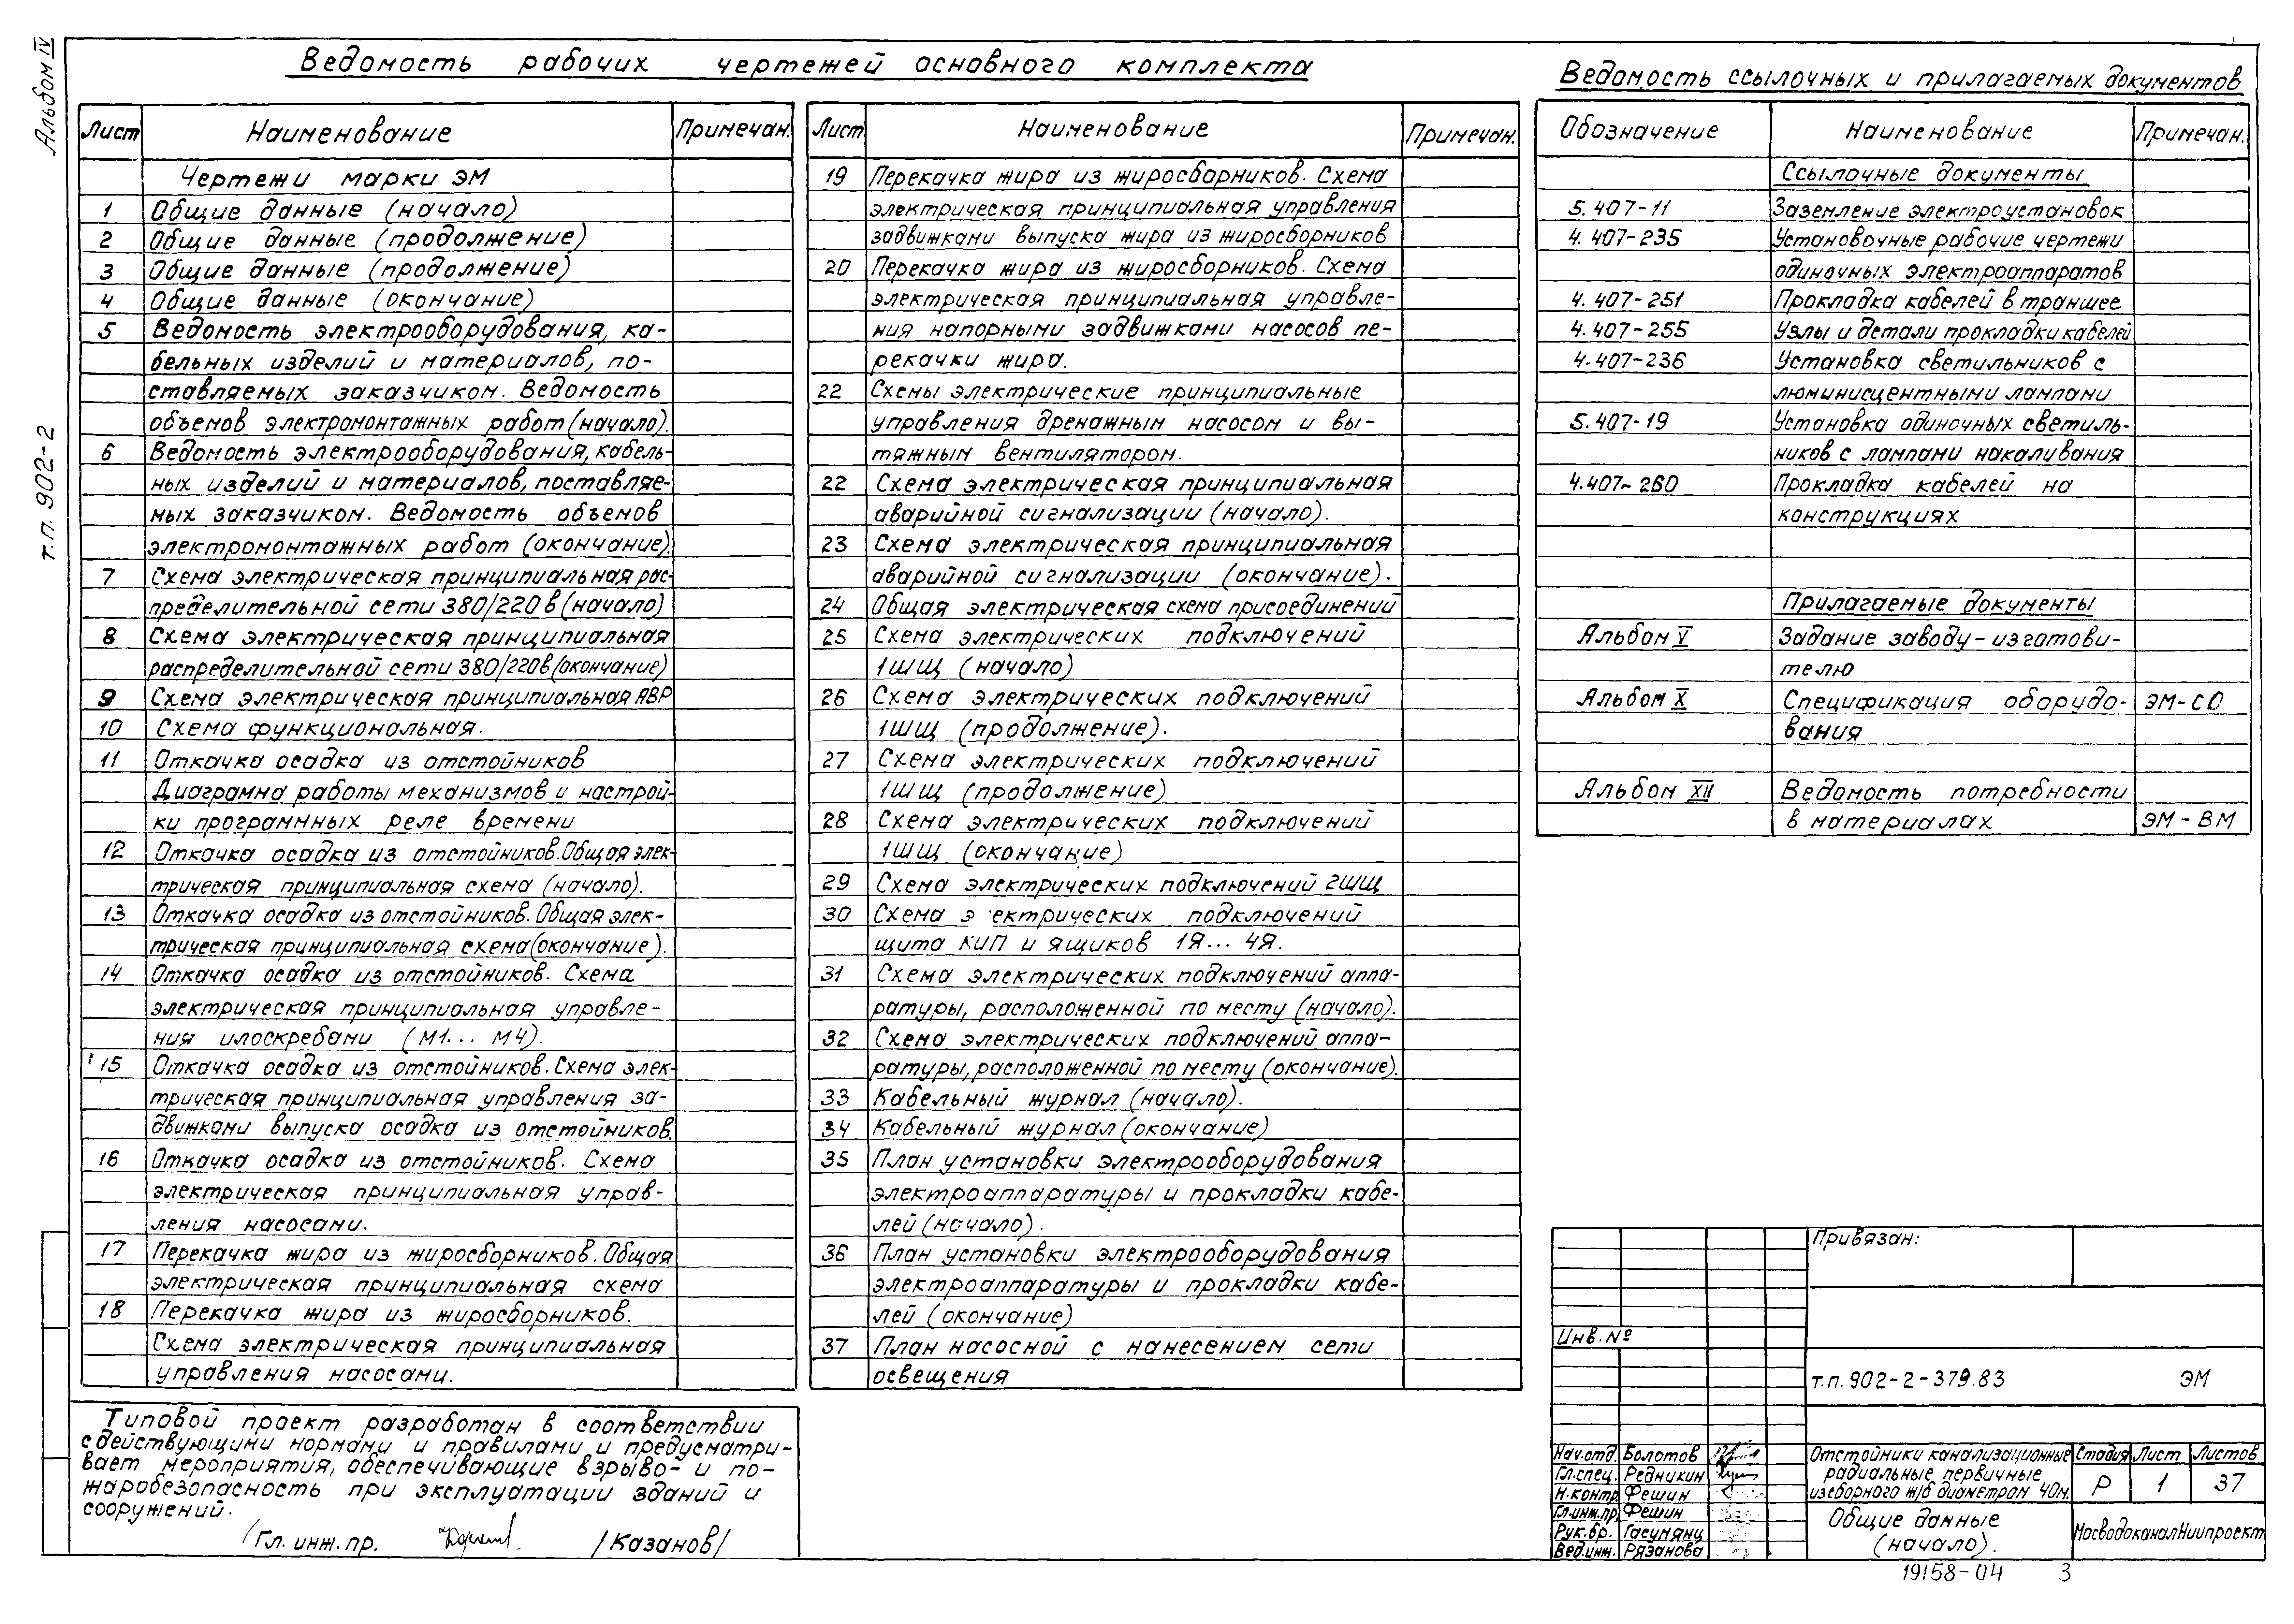 Альбом IV
т.п. 902-2
Ведомость рабочих чертежей основного комплекта
Лист Наименование Примечан.
Чертежи марки ЭМ
1 Общие данные (начало)
2 Общие данные (продолжение)
3 Общие данные (продолжение)
4 Общие данные (окончание)
5 Ведомость электрооборудования, ка-
бельных изделий и материалов, по-
ставляемых заказчиком. Ведомость
объемов электромонтажных работ (начало).
6 Ведомость электрооборудования, кабель-
ных изделий и материалов, поставляе-
мых заказчиком. Ведомость объемов
электромонтажных работ (окончание).
7 Схема электрическая принципиальная рас-
пределительной сети 380/220 в (начало)
8 Схема электрическая принципиальная
распределительной сети 380/220 в (окончание)
9 Схема электрическая принципиальная АВР
10 Схема функциональная.
11 Откачка осадка из отстойников
Диаграмма работы механизмов и настрой-
ки программных реле времени
12 Откачка осадка из отстойников. Общая элек-
трическая принципиальная схема (начало).
13 Откачка осадка из отстойников. Общая элек-
трическая принципиальная схема (окончание).
14 Откачка осадка из отстойников. Схема
электрическая принципиальная управле-
ния илоскребами (М1... М4).
15 Откачка осадка из отстойников. Схема элек-
трическая принципиальная управления за-
движками выпуска осадка из отстойников.
16 Откачка осадка из отстойников. Схема
электрическая принципиальная управ-
ления насосами.
17 Перекачка жира из жиросборников. Общая
электрическая принципиальная схема
18 Перекачка жира из жиросборников.
Схема электрическая принципиальная
управления насосами.
Лист Наименование Примечан.
19 Перекачка жира из жиросборников. Схема
электрическая принципиальная управления
задвижками выпуска жира из жиросборников
20 Перекачка жира из жиросборников. Схема
электрическая принципиальная управле-
ния напорными задвижками насосов пе-
рекачки жира.
22 Схемы электрические принципиальные
управления дренажным насосом и вы-
тяжным вентилятором.
22 Схема электрическая принципиальная
аварийной сигнализации (начало).
23 Схема электрическая принципиальная
аварийной сигнализации (окончание).
24 Общая электрическая схема присоединений
25 Схема электрических подключений
1ШЩ (начало)
26 Схема электрических подключений
1ШЩ (продолжение).
27 Схема электрических подключений
1ШЩ (продолжение)
28 Схема электрических подключений
1ШЩ (окончание)
29 Схема электрических подключений 2ШЩ
30 Схема э ектрических подключений
щита КИП и ящиков 1Я... 4Я.
31 Схема электрических подключений аппа-
ратуры, расположенной по месту (начало).
32 Схема электрических подключений аппа-
ратуры, расположенной по месту (окончание).
33 Кабельный журнал (начало).
34 Кабельный журнал (окончание)
35 План установки электрооборудования
электроаппаратуры и прокладки кабе-
лей (начало).
36 План установки электрооборудования
электроаппаратуры и прокладки кабе-
лей (окончание)
37 План насосной с нанесением сети
освещения
Ведомость ссылочных и прилагаемых документов
Обозначение Наименование Примечан.
Ссылочные документы
5.407-11 Заземление электроустановок
4.407-235 Установочные рабочие чертежи
одиночных электроаппаратов
4.407-251 Прокладка кабелей в траншее
4.407-255 Узлы и детали прокладки кабелей
4.407-236 Установка светильников с
люминисцентными лампами
5.407-19 Установка одиночных светиль-
ников с лампами накаливания
4.407-260 Прокладка кабелей на
конструкциях
Прилагаемые документы
Альбом V Задание заводу-изготови-
телю
Альбом X Спецификация оборудо- ЭМ-СО
вания
Альбом XII Ведомость потребности
в материалах ЭМ-ВМ
Типовой проект разработан в соответствии
с действующими нормами и правилами и предусматри-
вает мероприятия, обеспечивающие взрыво- и по-
жаробезопасность при эксплуатации зданий и
сооружений.
Гл. инж. пр. /Казанов/
Привязан:
Инв. №
т.п. 902-2-379.83 ЭМ
Нач.отд. Болотов
Гл.спец. Редникин
Н.контр. Фешин
Гл.инж.пр. Фешин
Рук.бр. Гасумянц
Вед.инж. Рязанова
Отстойники канализационные
радиальные первичные
из сборного ж/б диаметром 40м.
Стадия Лист Листов
Р 1 37
Общие данные
(начало).
МосводоканалНиипроект
19158-04 3